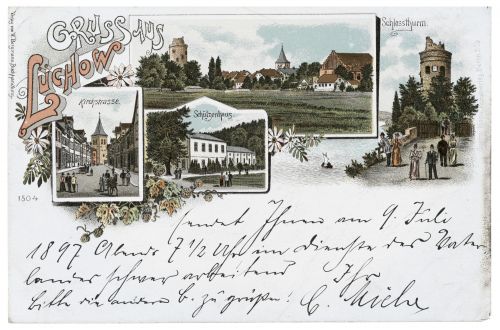 GRUSS AUS
LÜCHOW
Schlossthurm.
Kirchstrasse.
Schützenhaus.
1504
sendet Ihnen am 9. Juli
1897 Abends 7 1/2 Uhr im Dienste des Vater
landes schwer arbeitend
Ihr
bitte die andern b. zu grüßen!